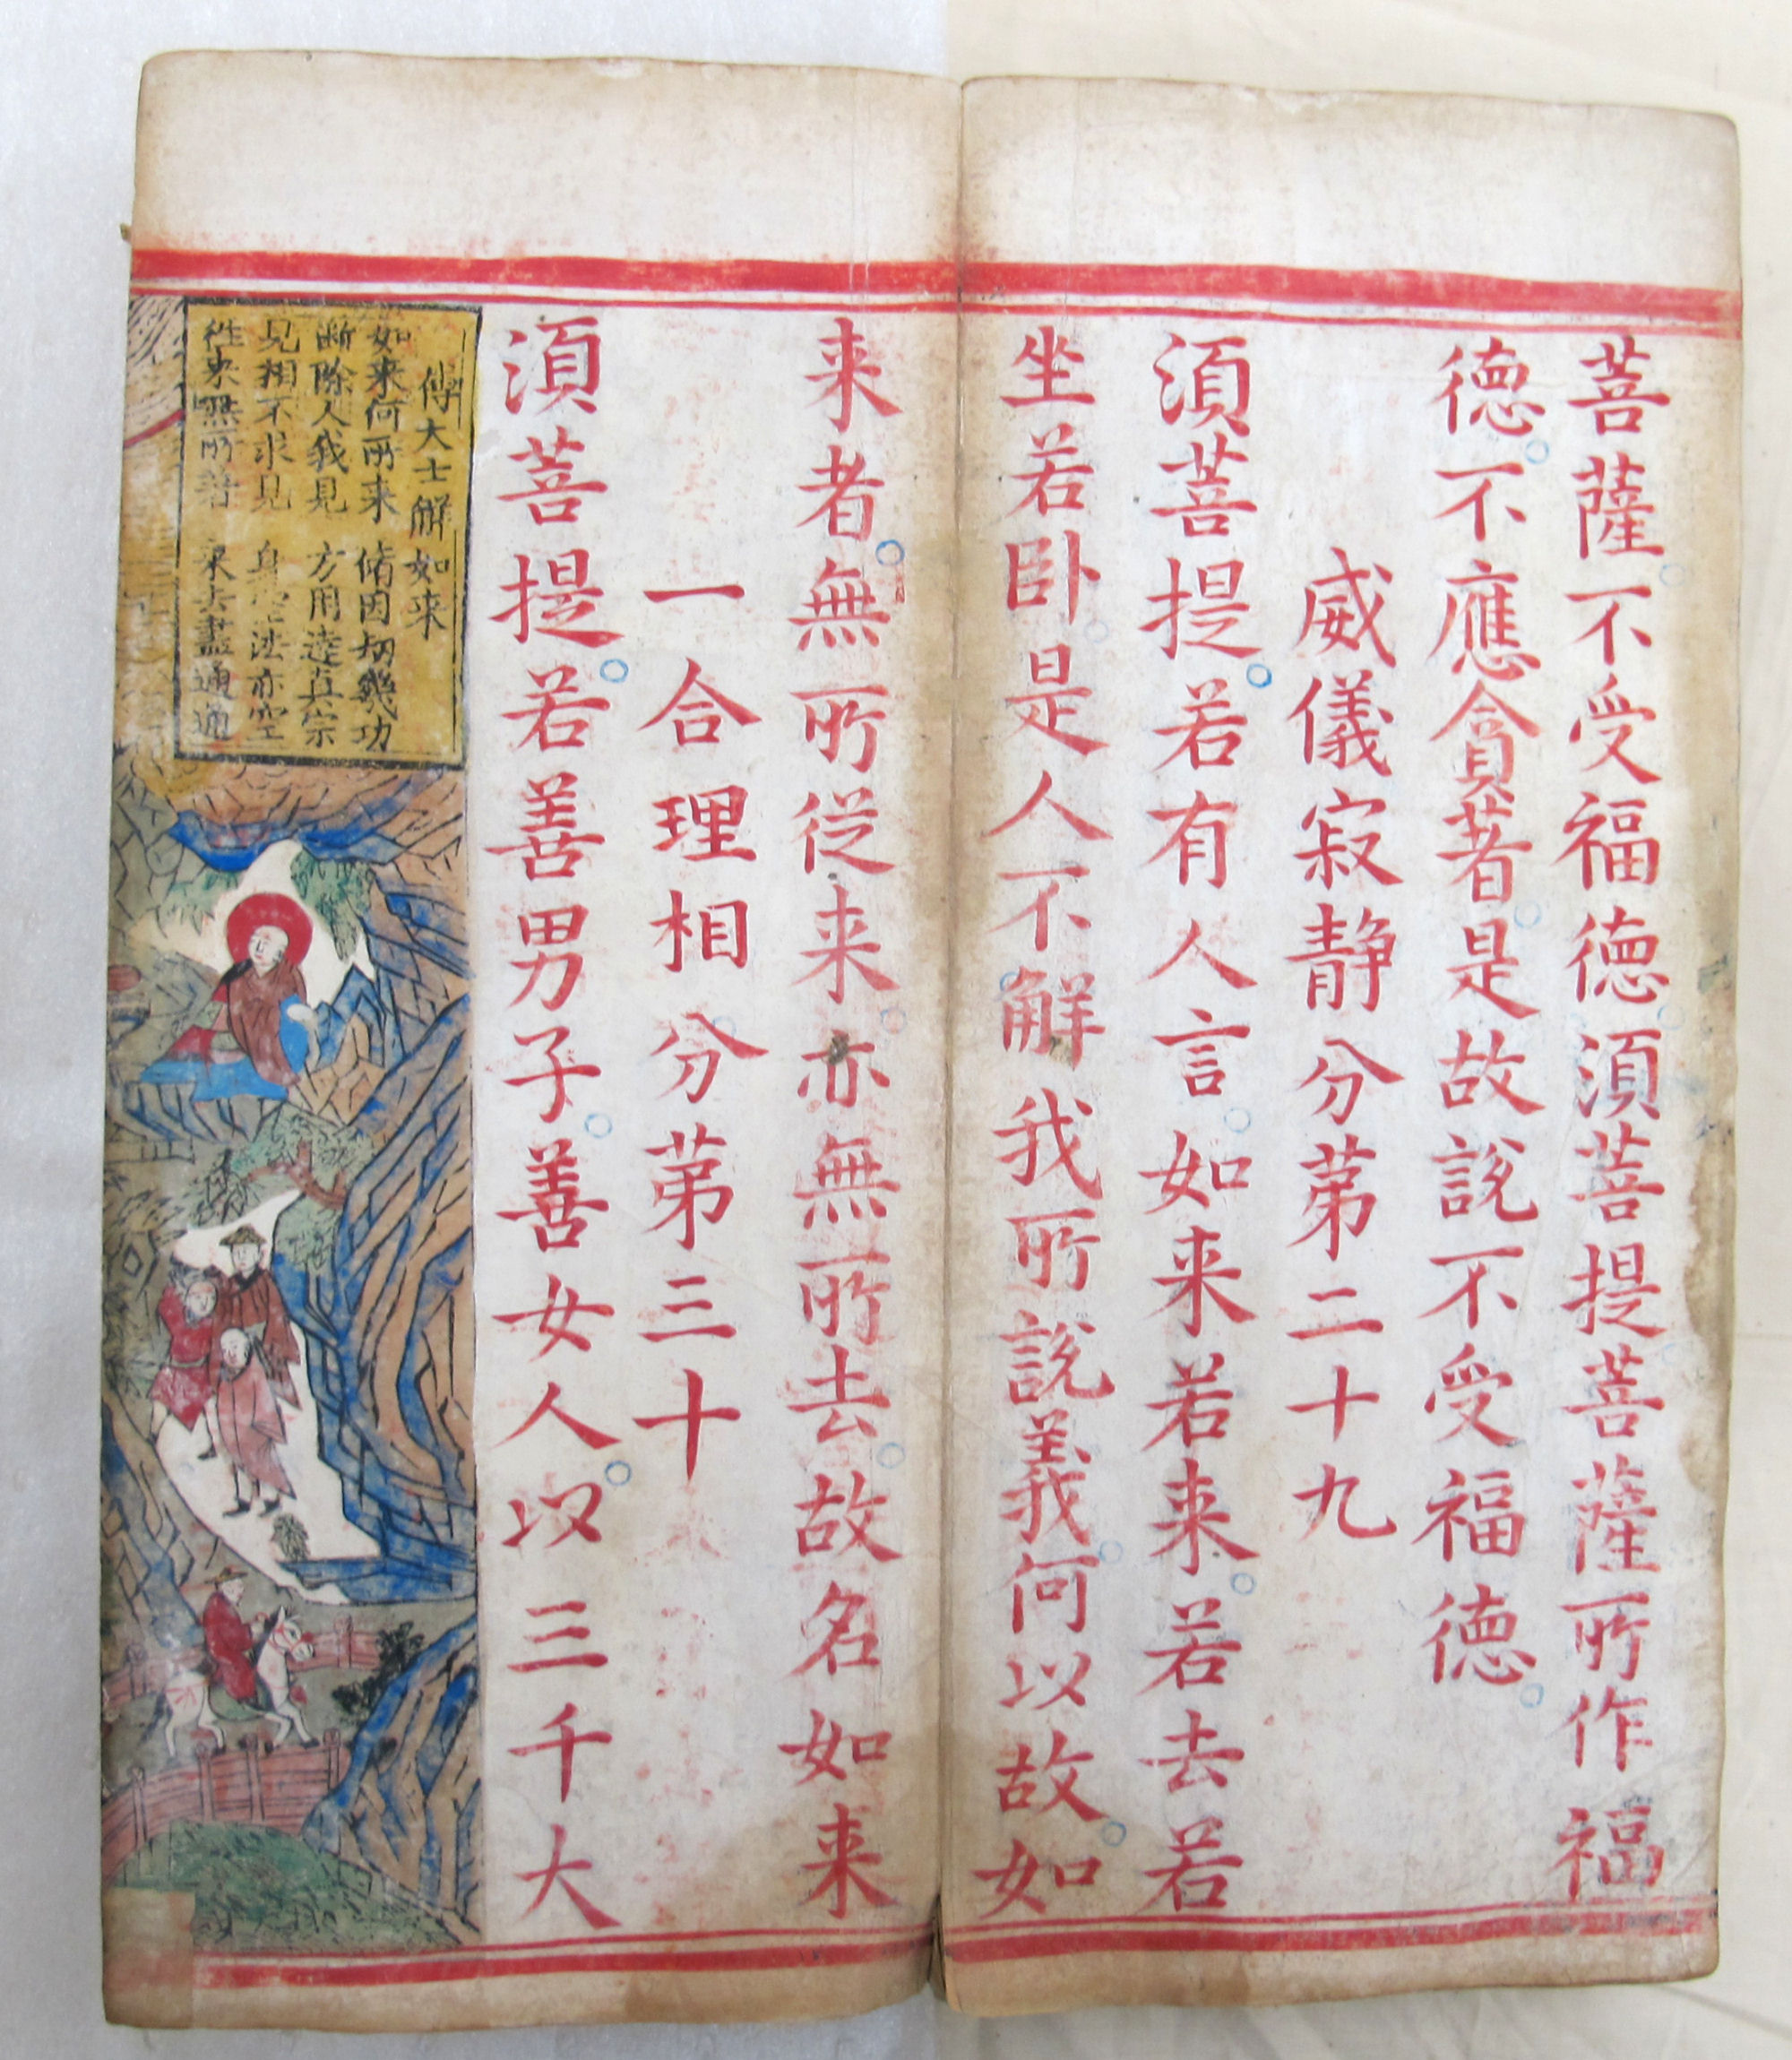 菩薩不受福德須菩提菩薩所作福
德不應貪著是故說不受福德
威儀寂静分苐二十九
須菩提若有人言如来若来若去若
坐若卧是人不解我所說義何以故如
来者無所従来亦無所去故名如来
一合理相分苐三十
須菩提若善男子善女人以三千大
傅大士解如来
如来何所来 脩因刼幾功
断除人我見 方用達真宗
見相不求見 身空法亦空
徃来無所著 来去盡通通